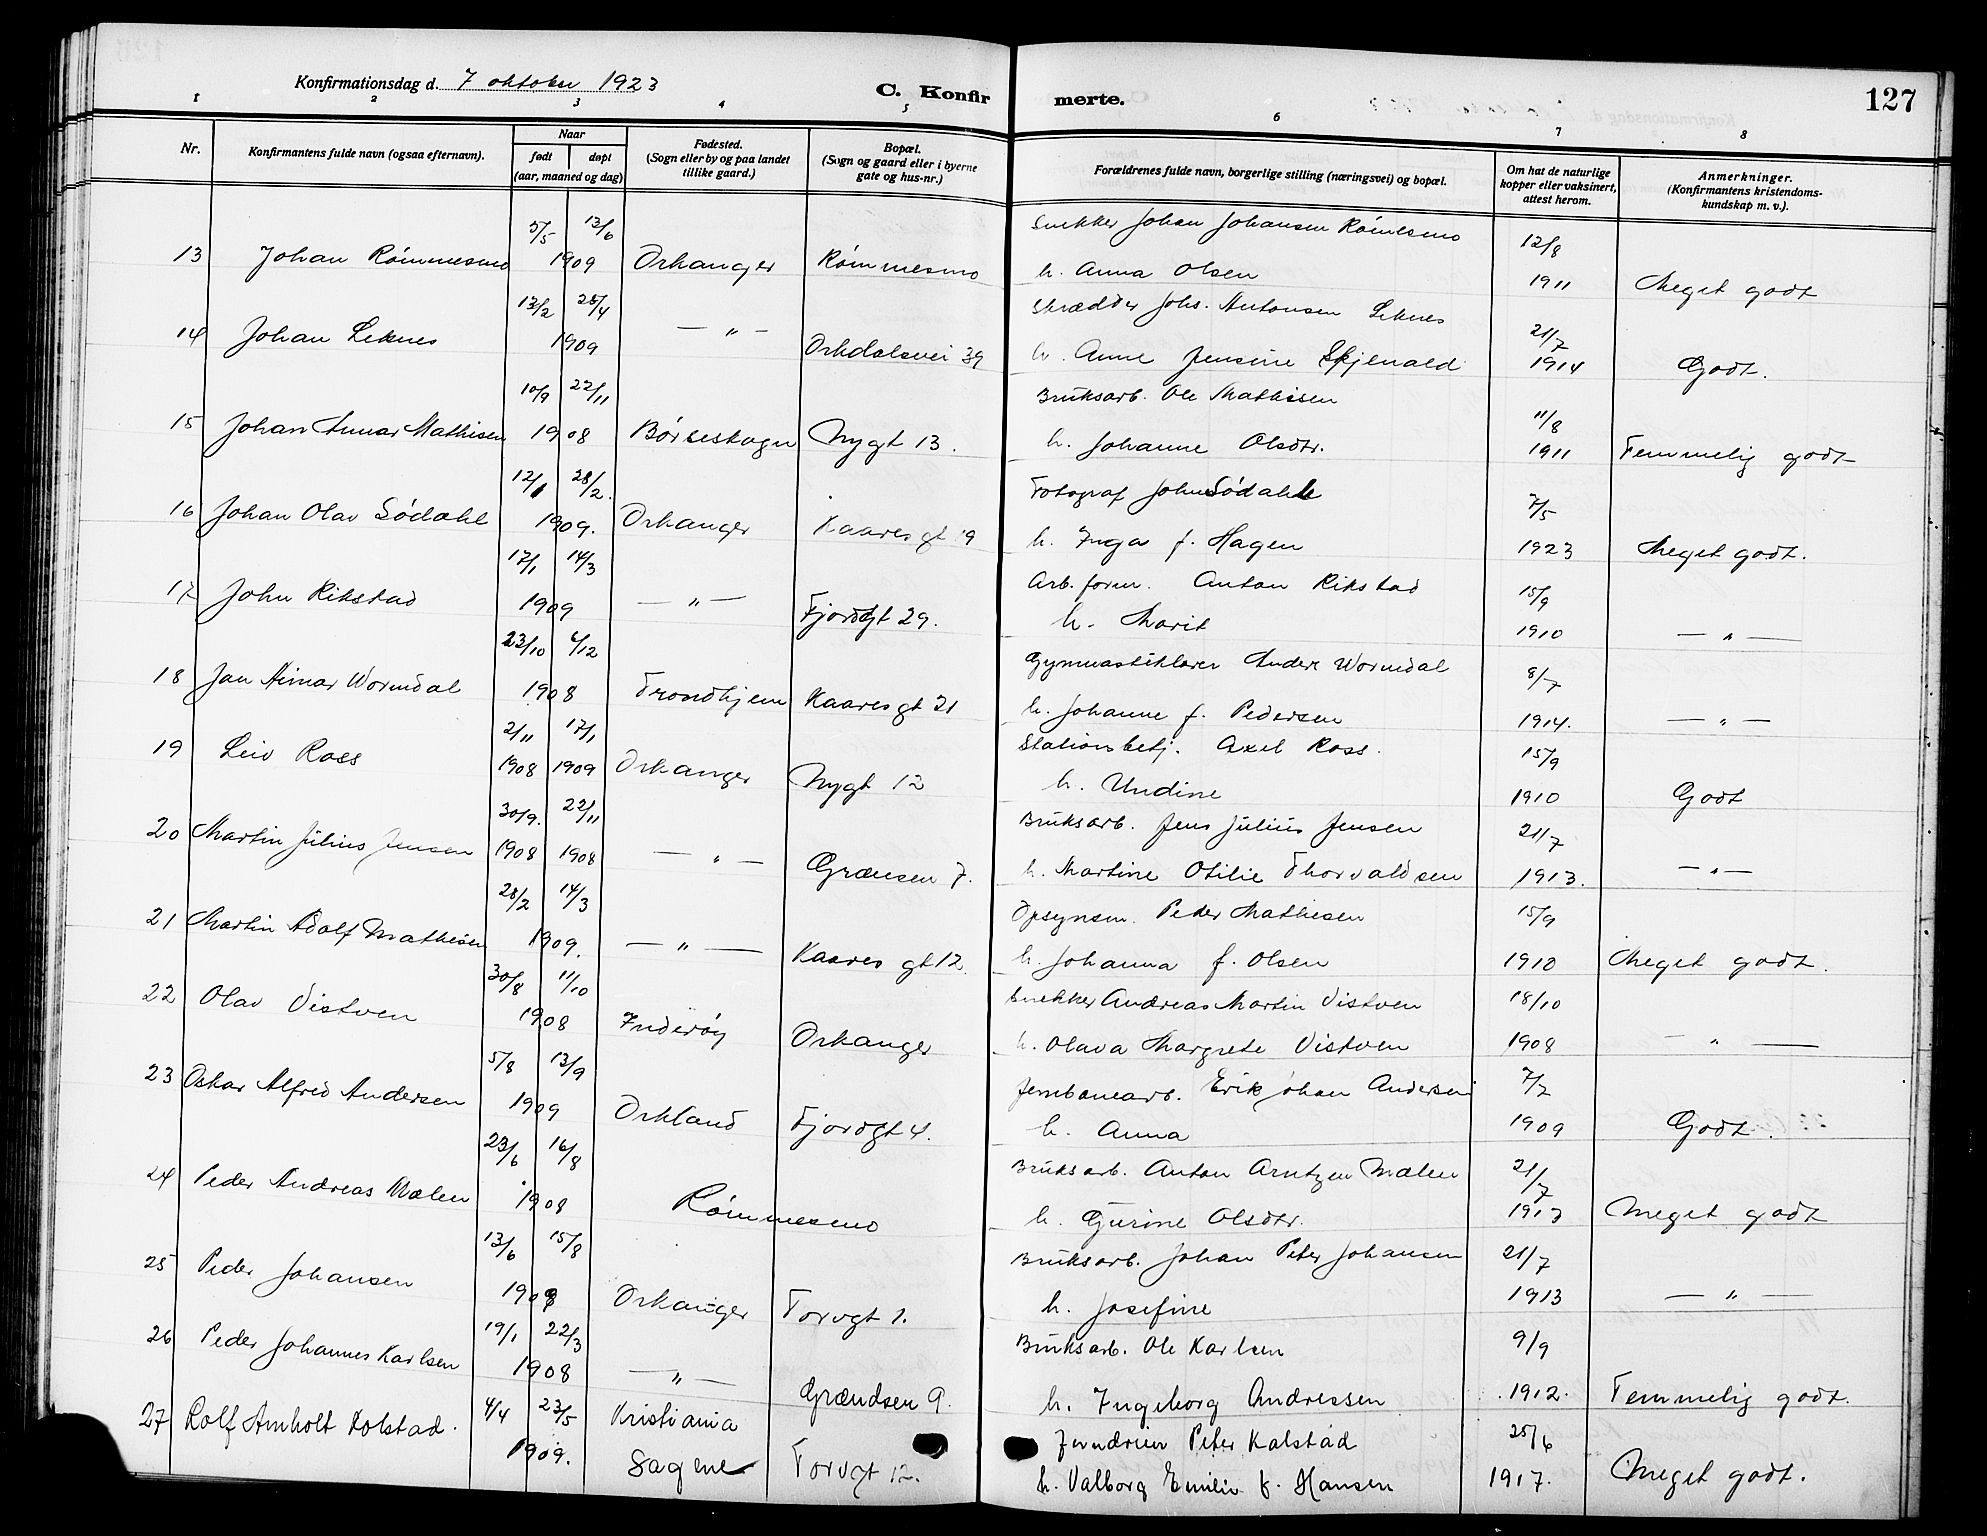 Konfirmationsdag d. 7 oktober 1923
C. Konfir merte.
127
1 2 3 4 5 6 7 8
Nr.
Konfirmantens fulde navn (ogsaa efternavn).
Naar
født døpt
(aar, maaned og dag)
Fødested.
(Sogn eller by og paa landet
tillike gaard.)
Bopæl.
(Sogn og gaard eller i byerne
gate og hus-nr.)
Forældrenes fulde navn, borgerlige stilling (næringsvei) og bopæl.
Om hat de naturlige
kopper eller vaksinert,
attest herom.
Anmerkninger.
(Konfirmantens kristendoms-
kundskap m. v.).
5/5 13/6 Snekker Johan Johansen Rømesmo 12/8
13 Johan Rømmesmo 1909 Orkanger Rømmesmo h. Anna Olsen 1911 Meget godt
13/2 25/4 Skrædder Johs. Antonsen Leknes 21/7
14 Johan Leknes 1909 — " — Orkdalsvei 39 h. Anne Jensine Skjenald 1914 Godt.
10/9 22/11 Bruksarb. Ole Mathisen 11/8
15 Johan Annar Mathisen 1908 Børseskogn Nygt 13. h. Johanne Olsdtr. 1911 Temmelig godt
12/1 28/2. Fotograf John Sødahl 7/5
16 Johan Olav Sødahl 1909. Orkanger Kaares gt 19 h. Inga f. Hagen 1923 Meget godt.
17/1 14/3 Arb. form. Anton Rikstad 15/9
17 John Rikstad 1909 — " — Fjordgt 29. h. Marit 1910 — " —
23/10 6/12 Gymnastiklærer Anders Wormdal 8/7
18 Jan Wormdal 1908 Trondhjem Kaares gt 21 h. Johanne f. Pedersen 1914. — " —
2/11 17/1 Stationsbetj. Axel Ross. 15/9
19 Leiv Ross 1908 1909 Orkanger Nygt 12 h. Undine 1910 Godt
30/9. 22/11 Bruksarb. Jens Julius Jensen 21/7
20 Martin Julius Jensen 1908 1908 — " — Grænsen 7. h. Martine Otilie Thorvaldsen 1913. — " —
28/2 14/3 Opsynsm. Peder Mathisen 15/9
21 Martin Adolf Mathisen 1909. — " — Kaares gt 12. h. Johanna f. Olsen 1910 Meget godt.
30/8 11/10 Snekker Andreas Martin Vistven 18/10
22 Olav Vistven 1908 Inderøy Orkanger h. Olava Margrete Vistven 1908 — " —
5/8 13/9 Jernbanearb. Erik Johan Andersen 7/7
23 Oskar Alfred Andersen 1909 Orkland Fjordgt 4. h. Anna 1909 Godt.
23/6 16/8 Bruksarb. Anton Arntzen Mælen 21/7
24 Peder Andreas Mælen 1908 Rømmesmo h. Gurine Olsdtr. 1913 Meget godt
13/6 15/8 Bruksarb. Johan Peter Johansen 21/7
25 Peder Johansen 1908 Orkanger Torvgt 1. h. Josefine 1913 — " —
19/1 22/3 Bruksarb. Ole Karlsen 9/9
26 Peder Johannes Karlsen 1908 — " — Grændsen 9. h. Ingeborg Andressen 1912. Temmelig godt.
27 Rolf Arnholt Kolstad. 4/4 23/5 Kristiania Peter Kolstad 25/6
1909. Sagene Torvgt 12. h. Valborg Emilie f. Hansen 1917. Meget godt.